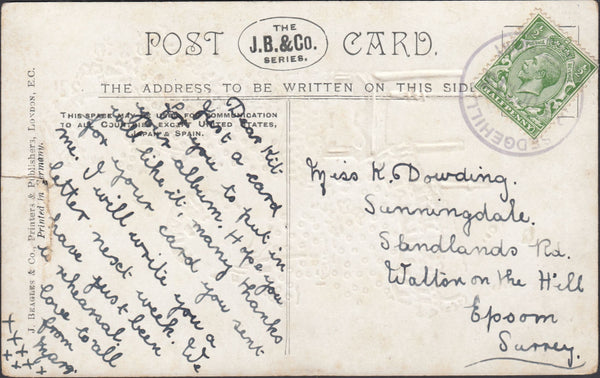 POST CARD.
THE
J.B.&Co.
SERIES.
THE ADDRESS TO BE WRITTEN ON THIS SIDE
THIS SPACE MAY BE USED FOR COMMUNICATION
TO ALL COUNTRIES EXCEPT UNITED STATES,
JAPAN & SPAIN.
J. BEAGLES & Co., Printers & Publishers, LONDON, E.C.
Printed in Germany.
SEDGEHILL
HALFPENNY
Dear Kit.
Just a card
for you to put in
your album. Hope you
will like it, many thanks
for your card you sent
me. I will write you a
letter next week. We
have just been
rehearsal.
love to all
from
++++++
Miss K. Dowding.
Sunningdale.
Standlands Rd.
Walton on the Hill
Epsom
Surrey.